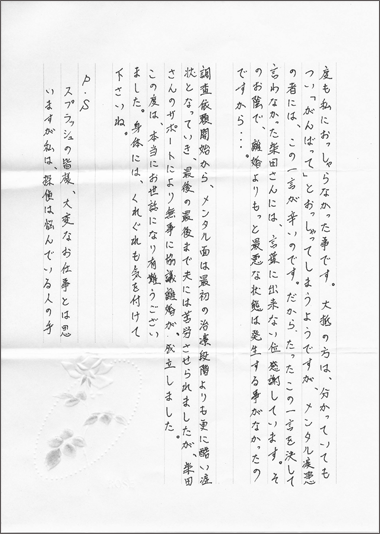 度も私におっしゃらなかった事です。大抵の方は、分かっていても
つい「がんばって」とおっしゃってしまうようですが メンタル疾患
の者には、この一言が辛いのです。だから、たったこの一言を決して
言わなかった柴田さんには、言葉に出来ない位感謝しています。そ
のお陰で、離婚よりもっと最悪な状態は発生する事がなかったの
ですから…。
調査依頼開始から、メンタル面は最初の治療段階よりも更に酷い症
状となっていき、最後の最後まで夫には苦労させられましたが、柴田
さんのサポートにより無事に協議離婚が、成立しました。
この度は、本当にお世話になり有難うござい
ました。身体には、くれぐれも気を付けて
下さいね。
P.S
スプラッシュの皆様、大変なお仕事とは思
いますが私は、探偵は悩んでいる人の手